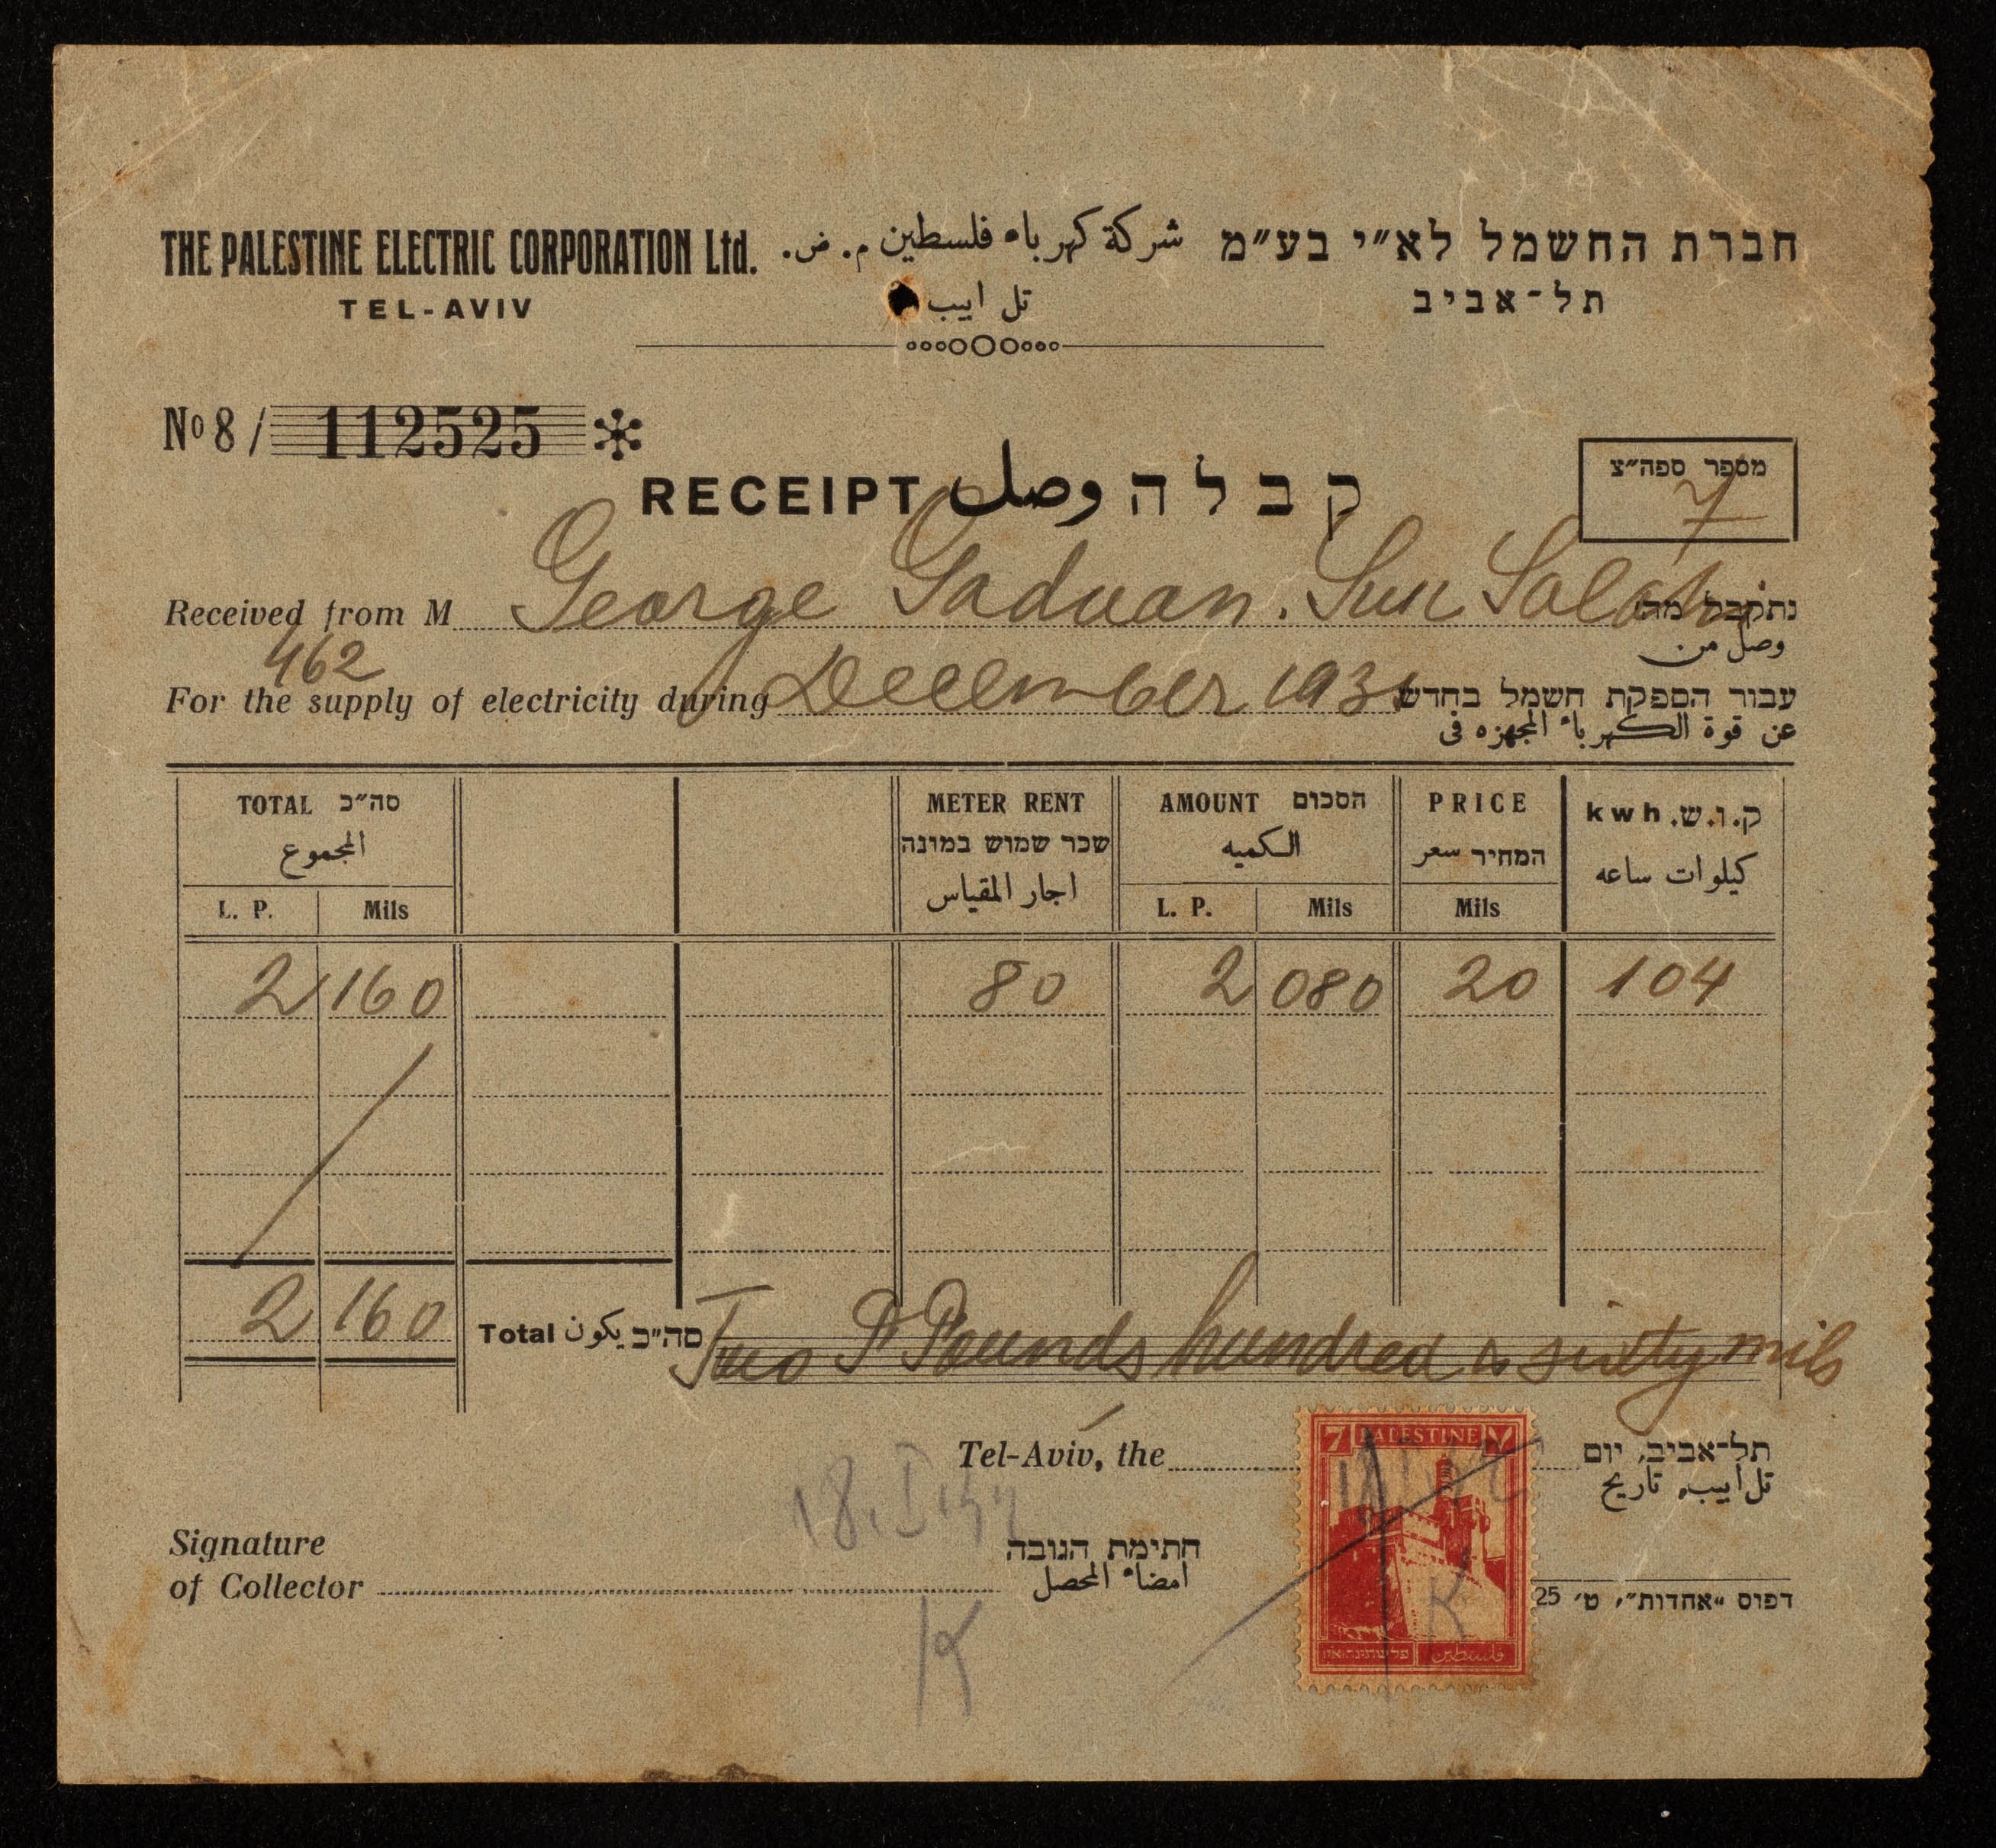 THE PALESTINE ELECTRIC CORPORATION Ltd. شركة كهرباء فلسطين م. ض. חברת החשמל לא״י בע״מ
TEL-AVIV تل ابيب תל-אביב
No 8 / 112525
RECEIPT وصل קבלה
מספר ספה״צ
7
Received from M George Gaduan. Suk Salahi נתקבל מה׳
وصل من
462
For the supply of electricity during December 1931 עבור הספקת חשמל בחדש
عن قوة الكهرباء المجهزه فى
TOTAL סה״כ METER RENT AMOUNT הסכום PRICE kwh ק.ו.ש.
المجموع שכר שמוש במונה الكميه המחיר سعر كيلوات ساعه
اجار المقياس
L. P. Mils L. P. Mils Mils
2 160 80 2 080 20 104
2 160 Total يكون סה״כ Two P Pounds hundred & sixty mils
Tel-Aviv, the תל-אביב, יום
تل ابيب، تاريخ
7 PALESTINE ٧
فلسطين
פלשתינה א״י
Signature
of Collector
חתימת הגובה
امضاء المحصل
K
K
דפוס „אחדות”, ט׳ 25